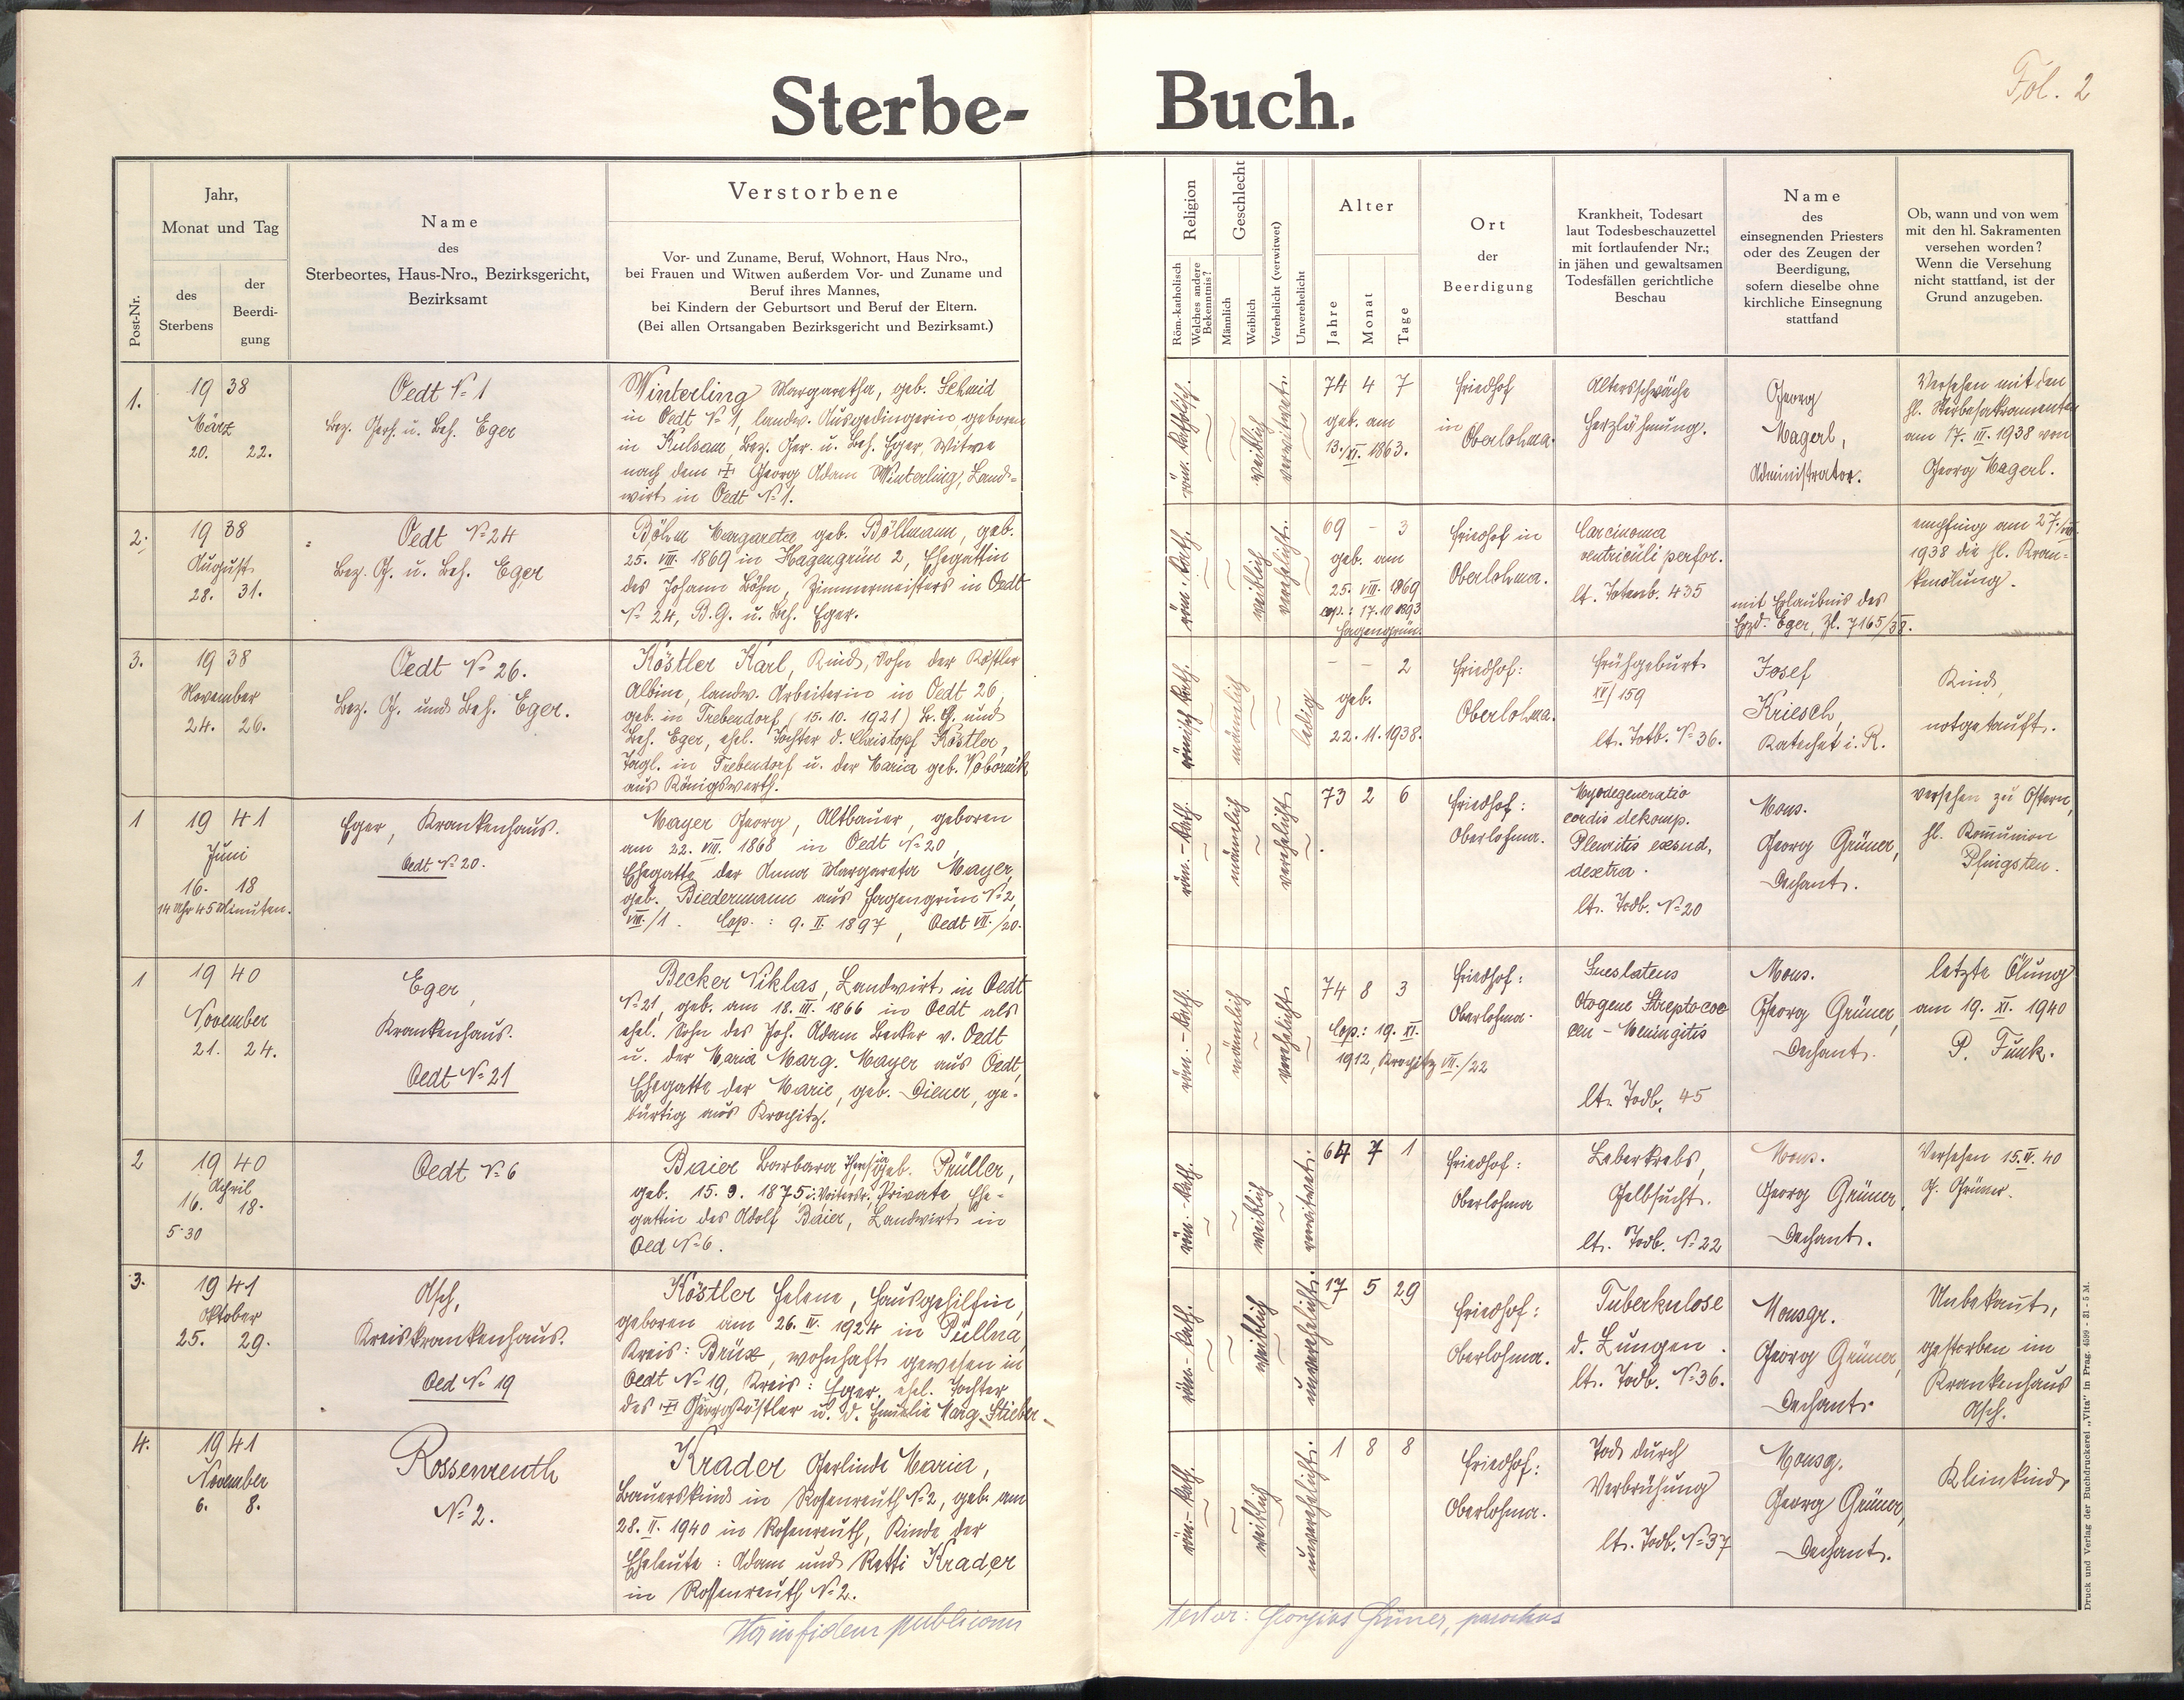 Fol. 2
Sterbe- Buch.
Post-Nr.
Jahr,
Monat und Tag
des
Sterbens
der
Beerdi-
gung
Name
des
Sterbeortes, Haus-Nro., Bezirksgericht,
Bezirksamt
Verstorbene
Vor- und Zuname, Beruf, Wohnort, Haus Nro.,
bei Frauen und Witwen außerdem Vor- und Zuname und
Beruf ihres Mannes,
bei Kindern der Geburtsort und Beruf der Eltern.
(Bei allen Ortsangaben Bezirksgericht und Bezirksamt.)
Religion
Röm.-katholisch
Welches andere
Bekenntnis?
Geschlecht
Männlich
Weiblich
Verehelicht (verwitwet)
Unverehelicht
Alter
Jahre
Monat
Tage
Ort
der
Beerdigung
Krankheit, Todesart
laut Todesbeschauzettel
mit fortlaufender Nr.;
in jähen und gewaltsamen
Todesfällen gerichtliche
Beschau
Name
des
einsegnenden Priesters
oder des Zeugen der
Beerdigung,
sofern dieselbe ohne
kirchliche Einsegnung
stattfand
Ob, wann und von wem
mit den hl. Sakramenten
versehen worden?
Wenn die Versehung
nicht stattfand, ist der
Grund anzugeben.
1.
19 38
März
20. 22.
Oedt № 1
Bez. Gerh. u. Beh. Eger
Winterling Margaretha, geb. Schmid
in Oedt № 1, landw. Ausgedingerin, geboren
in Kulsam, Bez. Ger. u. Beh. Eger, Witwe
nach dem † Georg Adam Winterling, Land-
wirt in Oedt № 1.
röm. katholisch.
weiblich
verwitwet.
74 4 7
geb. am
13./XI. 1863.
Friedhof
in
Oberlohma.
Altersschwäche
Herzlähmung.
Georg
Magerl,
Administrator.
Versehen mit den
hl. Sterbesakramenten
am 17. III. 1938 von
Georg Magerl.
2.
19 38
August
28. 31.
Oedt № 24
Bez. G. u. Beh. Eger
Böhm Margareta geb. Böllmann, geb.
25. VIII. 1869 in Hagengrün 2, Ehegattin
des Johann Böhm, Zimmermeisters in Oedt
№ 24, B.G. u. Beh. Eger.
röm. kath.
weiblich
verehelicht.
69 - 3
geb. am
25. VIII. 1869
cop.: 17. 10 1893
Hagengrün.
Friedhof in
Oberlohma.
Carcinoma
ventriculi perfor.
lt. Totenb. 435
mit Erlaubnis des
Erzd. Eger, Zl. 7165/38.
empfing am 27./VIII.
1938 die hl. Kran-
kenölung.
3.
19 38
November
24. 26.
Oedt № 26.
Bez. G. und Beh. Eger.
Köstler Karl, Kind, Sohn der Köstler
Albine, landw. Arbeiterin in Oedt 26,
geb. in Trebendorf (15. 10. 1921) B. G. und
Beh. Eger, ehel. Tochter d. Christopf Köstler,
Tagl. in Trebendorf u. der Maria geb. Wobornik
aus Königswerth.
römisch kath.
männlich
ledig
- - 2
geb.
22. 11. 1938.
Friedhof:
Oberlohma.
Frühgeburt
XV/159
lt. Totb. № 36.
Josef
Kriesch,
Katechet i. R.
Kind,
notgetauft.
1
19 41
Juni
16. 18
14 Uhr 45 Minuten.
Eger, Krankenhaus.
Oedt № 20.
Mayer Georg, Altbauer, geboren
am 22. VIII. 1868 in Oedt № 20,
Ehegatte der Anna Margareta Mayer,
geb. Biedermann aus Hagengrün № 2,
VIII./1. Cop.: 9. II. 1897, Oedt VII./20.
röm.-kath.
männlich
verehelicht
73 2 6
Friedhof:
Oberlohma.
Myodegeneratio
cordis dekomp.
Pleuritis exsud,
dextra.
lt. Todb. № 20
Mons.
Georg Grüner,
Dechant.
versehen zu Ostern,
hl. Komunion
Pfingsten.
1
19 40
November
21. 24.
Eger,
Krankenhaus.
Oedt № 21
Becker Niklas, Landwirt in Oedt
№ 21, geb. am 18. III. 1866 in Oedt als
ehel. Sohn des Joh. Adam Becker v. Oedt
u. der Maria Marg. Mayer aus Oedt,
Ehegatte der Marie, geb. Diener, ge-
bürtig aus Krogitz.
röm.-kath.
männlich
verehelicht
74 8 3
Cop.: 19. XI.
1912, Krogitz VII./22
Friedhof:
Oberlohma.
Lues latens
Otogene Streptococ
cen - Meningitis
lt. Todb. 45
Mons.
Georg Grüner,
Dechant.
letzte Ölung
am 19. XI. 1940
P. Funk.
2
19 40
April
16. 18.
5·30
Oedt № 6
Baier Barbara Theresia geb. Prüller,
geb. 15. 9. 1875 i. Voitersr., Private, Ehe-
gattin des Adolf Baier, Landwirt in
Oed № 6.
röm.-kath.
weiblich
verwitwet.
64 7 1
Friedhof:
Oberlohma
Leberkrebs,
Gelbsucht.
lt. Todb. № 22
Mons.
Georg Grüner,
Dechant.
Versehen 15. IV. 40
G. Grüner.
3.
19 41
Oktober
25. 29.
Asch,
Kreiskrankenhaus.
Oed № 19
Köstler Helene, Hausgehilfin,
geboren am 26. IV. 1924 in Püllna,
Kreis: Brüx, wohnhaft gewesen in
Oedt № 19, Kreis: Eger, ehel. Tochter
des † Georg Köstler u. d. Emilie Marg. Stieber
röm.-kath.
weiblich
unverehelicht.
17 5 29
Friedhof:
Oberlohma.
Tuberkulose
d. Lungen.
lt. Todb. № 36.
Monsgr.
Georg Grüner,
Dechant.
Unbekannt,
gestorben im
Krankenhaus
Asch.
4.
19 41
November
6. 8.
Rossenreuth
№ 2.
Krader Gerlinde Maria,
Bauerskind in Rossenreuth № 2, geb. am
28. II. 1940 in Rossenreuth, Kinde der
Eheleute: Adam und Retti Krader
in Rossenreuth № 2.
röm.-kath.
weiblich
unverehelicht.
1 8 8
Friedhof:
Oberlohma.
Tod durch
Verbrühung
lt. Todb. № 37
Monsg.
Georg Grüner,
Dechant.
Kleinkind,
in fidem publicam
testor: Georgius Grüner, parochus
Druck und Verlag der Buchdruckerei „Vita" in Prag. 4599 - 31 - 5 M.